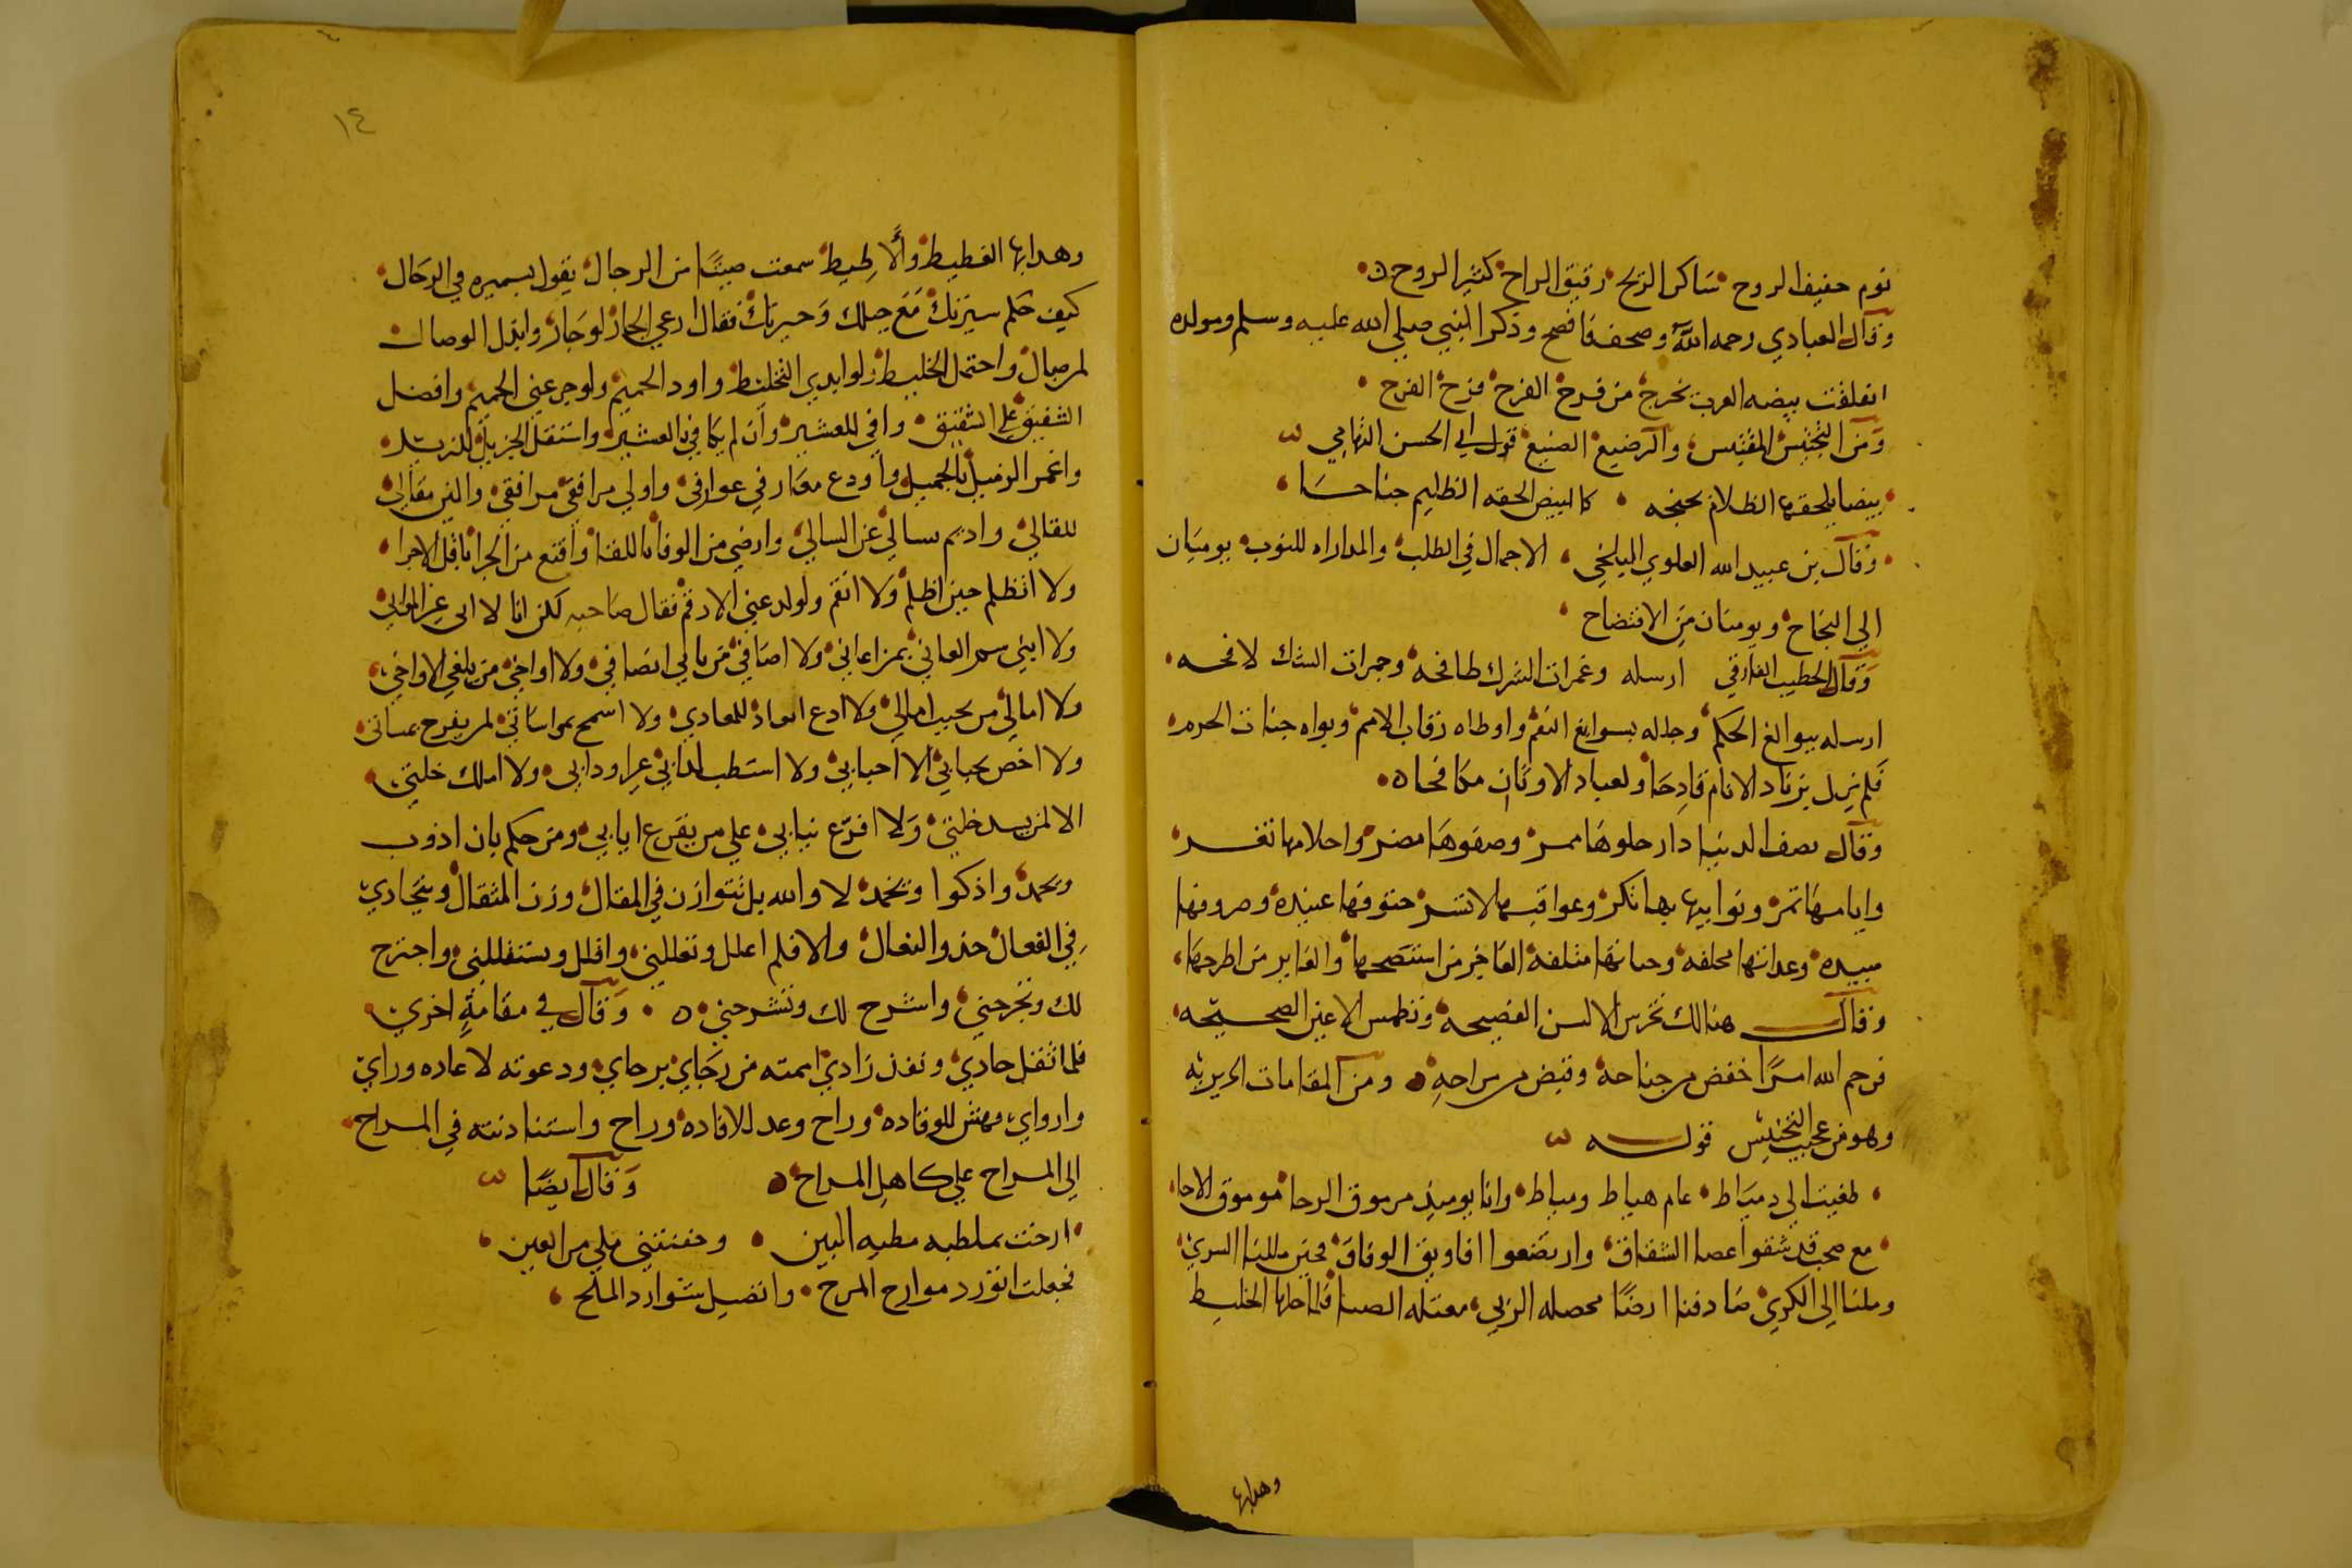 نوم خفيف الروح ساكن الريح رقيق الراح كثير الروح
وقال العبادي رحمه الله وصحف فافصح وذكر النبي صلى الله عليه وسلم ومولده
انفلقت بيضه العرب بخرج من فرخ الفرح فرح الفرح
ومن التجنيس المقتبس والترضيع الصنيع قول ابي الحسن التهامي
بيضا يلحفها الظلام بجنحه كالبيض الحفه الظليم جناحا
وقال بن عبيد الله العلوي البلخي الاجمال في الطلب والمداراه للنوب يوميان
الي النجاح ويومنان من الافتضاح
وقال الخطيب الفارقي ارسله وغمرات الشرك طافحه وجمرات الشك لافحه
ارسله ببوالغ الحكم وجلله بسوابغ النعم واوطاه رقاب الامم وبواه جنات الحرم
فلم يزل بزناد الانام قادحا ولعباد الاوثان مكافحا
وقال يصف الدنيا دار حلوها ممر وصفوها مضر واحلامها تغر
وايامها تمر ونوايبها بها تكر وعواقبها لا تسر حتوفها عنيده وصروفها
مبيده وعداتها مخلفه وحباتها متلفه الفاخر من استنصحها والغابر من اطرحها
وقال هنالك تخرس الالسن الفصيحه وتطمس الاعين الصحيحه
فرحم الله امرًا خفض من جناحه وقبض من مراحه ومن المقامات الحريريه
وهو من عجيب التجنيس قوله
طعنت الي دمياط عام هياط ومياط وانا يوميذ مرموق الرخا موموق الاخا
مع صحب قد شقوا عصا الشقاق وارتضعوا افاويق الوفاق فحين مللنا السري
وملنا الي الكري صادفنا ارضًا مخضله الربي معتله الصبا فلما حلها الخليط
وهدابها
١٤
وهدابها الغطيط والاطيط سمعت صيتًا من الرجال يقول لسميره في الرحال
كيف حكم سيرتك مع جيلك وجيرتك فقال ارعي الجار لو جار وابذل الوصال
لمن صال واحتمل الخليط ولو ابدي التخليط واود الحميم ولو جرعني الحميم وافضل
الشفيق علي الشقيق وافي للعشير وان لم يكافي بالعشير واستقل الجزيل للنزيل
واغمر الزميل بالجميل واودع معارفي عوارفي واولي مرافقي مرافقي والين مقالي
للقالي واديم تسالي عن السالي وارضي من الوفا باللفا واقنع من الجزا باقل الاجزا
ولا اتظلم حين اظلم ولا انقم ولو لدغني الارقم فقال صاحبه لكن انا لا اتي غير المواتي
ولا اسم العاتي بمراعاتي ولا اصافي من يابي انصافي ولا اواخي من يلغي الاواخي
ولا امالي من يخيب امالي ولا ادع ابعادي للمعادي ولا اسمح بمواساتي لمن يفرح بمساتي
ولا اخص بحبايي الا احبايي ولا استطب لدايي غير اودايي ولا املك خلتي
الا لمن يسد خلتي ولا افرغ ثنايي علي من يفرغ انايي ومن حكم بان اذوب
وتجمد واذكوا وتخمد لا والله بل نتوازن في المقال وزن المثقال ونتحاذي
في الفعال حذو النعال والا فلم اعلل وتعللني واقلل وتستقلني واجترح
لك وتجرحني واسرح لك وتسرحني وقال في مقامة اخري
فلما ثقل حاذي ونفد زادي اممته من رجاي برجاي ودعوته لاعاده وراي
وارواي فهش للوفاده وراح وعد للافاده وراح واستاذنته في المراح
الي المراح علي كاهل المراح وقال ايضًا
ارخت بملطيه مطيه البين وحقيبتي ملي من العين
فجعلت اتورد موارد المرح واتصيد شوارد الملح